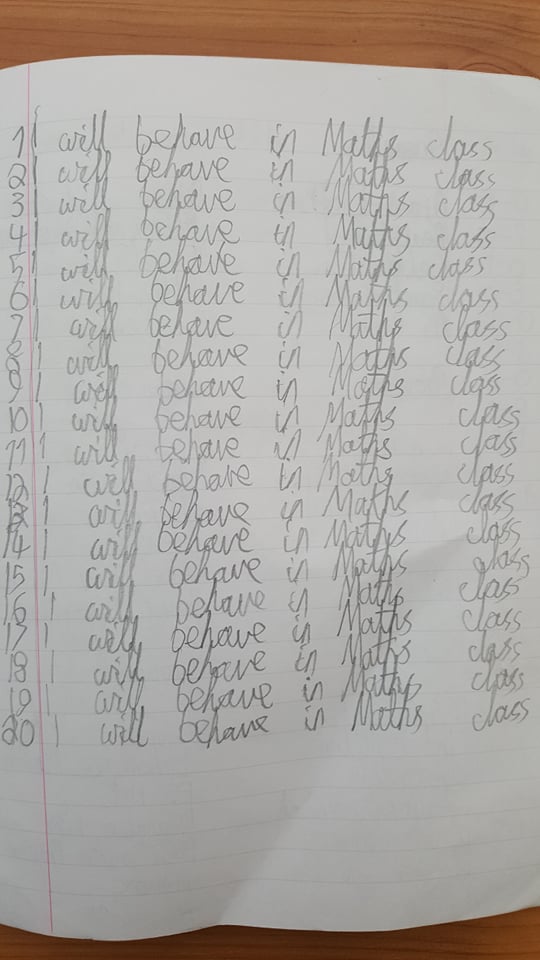 1 I will behave in Maths class
2 I will behave in Maths class
3 I will behave in Maths class
4 I will behave in Maths class
5 I will behave in Maths class
6 I will behave in Maths class
7 I will behave in Maths class
8 I will behave in Maths class
9 I will behave in Maths class
10 I will behave in Maths class
11 I will behave in Maths class
12 I will behave in Maths class
13 I will behave in Maths class
14 I will behave in Maths class
15 I will behave in Maths class
16 I will behave in Maths class
17 I will behave in Maths class
18 I will behave in Maths class
19 I will behave in Maths class
20 I will behave in Maths class